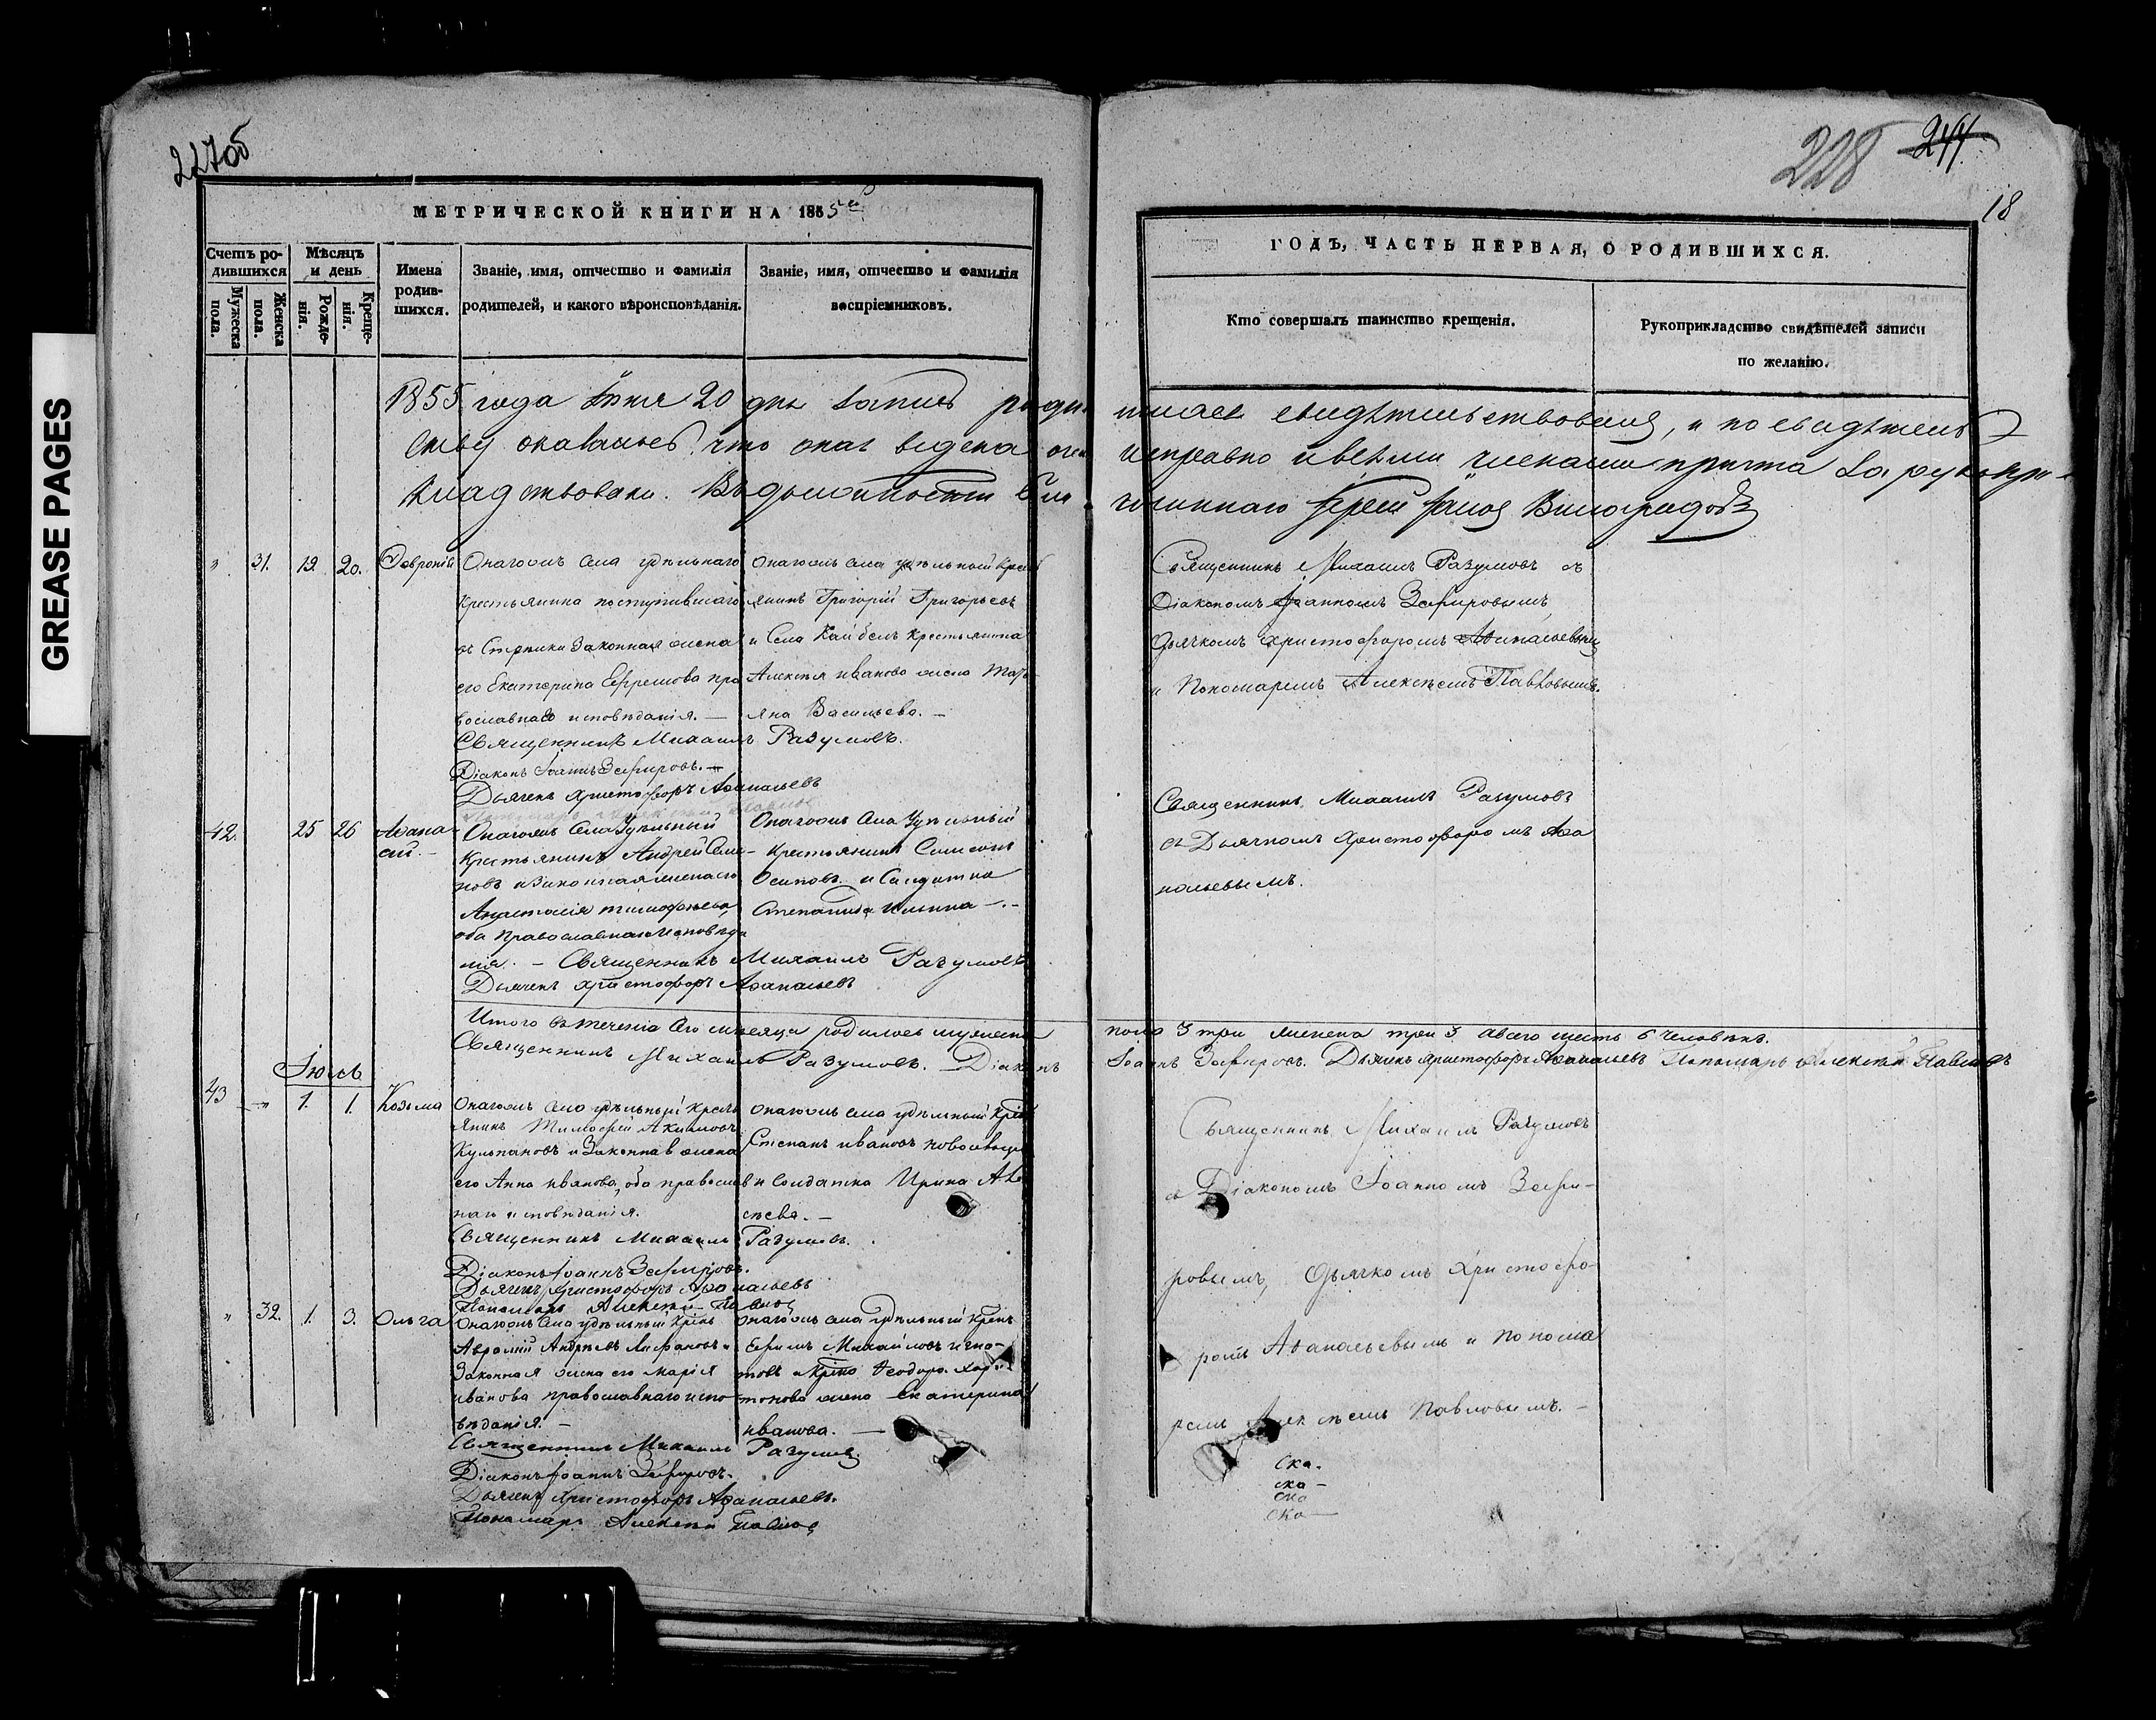 GREASE PAGES
227об
228
244
18
МЕТРИЧЕСКОЙ КНИГИ НА 1855
ГОДЪ, ЧАСТЬ ПЕРВАЯ, О РОДИВШИХСЯ.
Счетъ родившихся
Мужеска пола.
Женска пола.
Мѣсяцъ и день
Рожденія.
Крещенія.
Имена родившихся.
Званіе, имя, отчество и фамилія
родителей, и какого вѣроисповѣданія.
Званіе, имя, отчество и фамилія
воспріемниковъ.
Кто совершалъ таинство крещенія.
Рукоприкладство свидѣтелей записи
по желанію.
1855 года Іюня 20 дня запись
свидѣтельствовалъ, и по свидѣтель
ству оказалось, что оная ведена
исправно и всѣми членами причта зарукопри
кладствована.
Іерей Іаковъ Виноградовъ
31. 19. 20. Февронія
Онагожъ села удѣльнаго
крестьянина поступившаго
въ Стрѣлки законная жена
его Екатерина Ефремова пра
вославнаго исповѣданія. —
Онагожъ села удѣльный крест
янинъ Григорій Григорьевъ
и Села Кайбелъ крестьянина
Алексѣя иванова жена
Васильева. —
Священникъ Михаилъ Разумовъ.
Діаконъ Іоаннъ Зефировъ.
Дьячекъ Христофоръ Аѳанасьевъ
Священникъ Михаилъ Разумовъ съ
Діакономъ Іоанномъ Зефировымъ,
Дьячкомъ Христофоромъ Аѳанасьевымъ
и Пономаремъ Алексѣемъ Павловымъ.
42. 25 26 Аѳана-
сій. —
Онагожъ Села Удѣльный
Крестьянинъ Андрей Семе-
новъ и Законная жена его
Анастасія тимофѣева,
оба Православнаго Исповѣда
нія. — Священникъ Михаилъ Разумовъ
Дьячекъ Христофоръ Аѳанасьевъ
Онагожъ Села Удѣльный
крестьянинъ Симеонъ
Осиповъ и Солдатка
Степанида Ильина —
Священникъ Михаилъ Разумовъ
съ Дьячкомъ Христофоромъ Аѳа
насьевымъ.
Итого въ теченіе Сего мѣсяца родилось мужеска
пола 3 три женска три 3 а всего шесть 6 человѣкъ.
Священникъ Михаилъ Разумовъ. Діаконъ
Іоаннъ Зефировъ. Дьячекъ Христофоръ Аѳанасьевъ Пономарь Алексѣй Павловъ
Іюль
43 1. 1. Козьма
Онагожъ села удѣльный крестъ
янинъ Тимофѣй Акимовъ
Кульпановъ и Законная жена
его Анна иванова, оба православ
наго исповѣданія.
Онагожъ села удѣльный
Степанъ ивановъ
и Солдатка Ирина
Священникъ Михаилъ Разумовъ.
Діаконъ Іоаннъ Зефировъ.
Дьячекъ Христофоръ Аѳанасьевъ
Пономарь Алексѣй Павловъ
Священникъ Михаилъ Разумовъ
съ Діакономъ Іоанномъ Зефи-
ровымъ, Дьячкомъ Христофо-
ромъ Аѳанасьевымъ и Понома
ремъ Алексѣемъ Павловымъ. —
32. 1. 3. Ольга
Онагожъ села удѣльный
Андрѣевъ и
Законная жена его марія
иванова православнаго испо
вѣданія. —
Онагожъ села удѣльный
Ефимъ Михайловъ
Ѳеодора
жена екатерина
иванова. —
Священникъ Михаилъ Разумовъ
Діаконъ Іоаннъ Зефировъ.
Дьячекъ Христофоръ Аѳанасьевъ.
Пономарь Алексѣй Павловъ
Ска.
ска —
ска
ска —